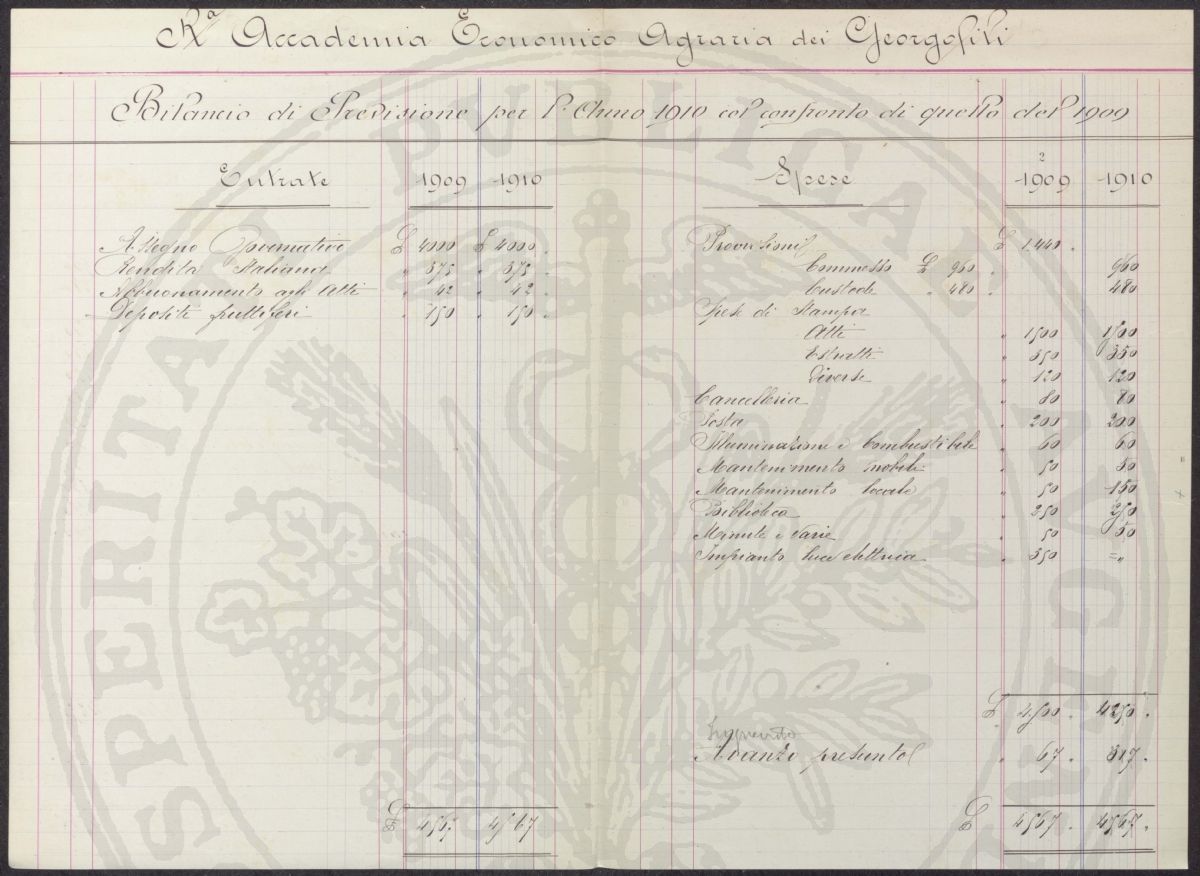 Rª Accademia Economico Agraria dei Georgofili
Bilancio di Previsione per l'Anno 1910 col confronto di quello del 1909
Entrate 1909 1910
Assegno Governativo £ 4000 £ 4000
Rendita Italiana " 375 " 375
Abbuonamento agli Atti " 42 " 42
Depositi fruttiferi " 150 " 150
£ 4567 4567
Spese 1909 1910
2
Provvisioni £ 1.440
Commesso £ 960 960
Custode " 480 480
Spese di Stampa
Atti " 1500 1500
Estratti " 350 350
Diverse " 120 120
Cancelleria " 80 80
Posta " 200 200
Illuminazione e Combustibile " 60 60
Mantenimento mobili " 50 50
Mantenimento locale " 50 150
Biblioteca " 250 250
Minute e Varie " 50 50
Impianto luce elettrica " 350 = "
£ 4500 4250
Avanzo presunto " 67 317
£ 4567 4567
PROSPERITATI PUBLICAE AUGENDAE